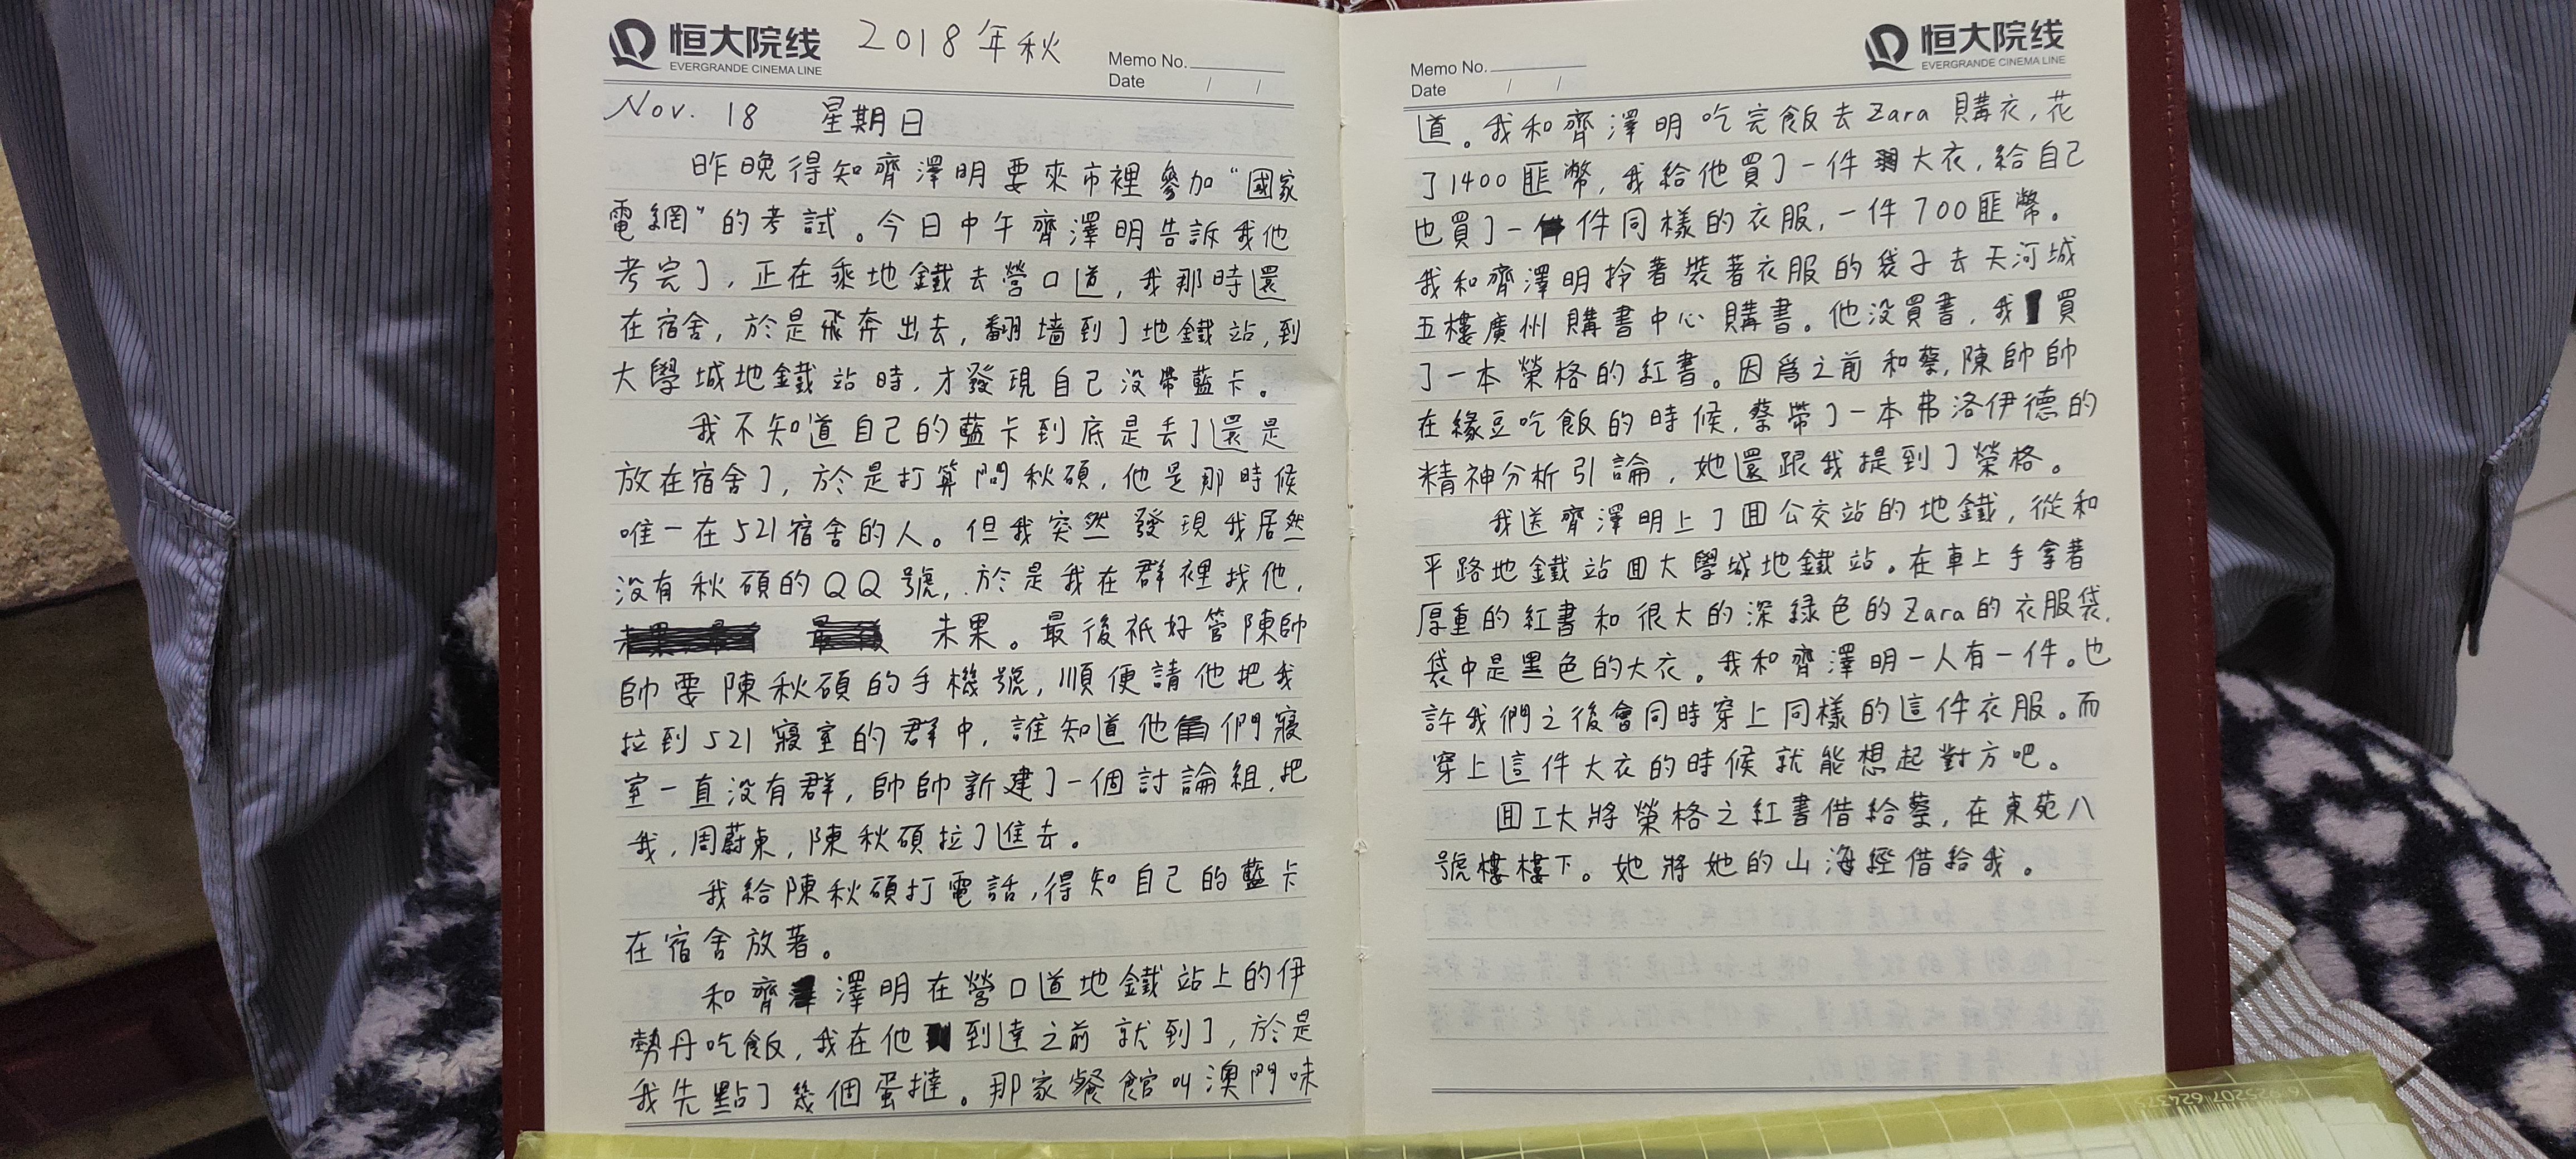 恒大院线 2018年秋
EVERGRANDE CINEMA LINE
Memo No.
Date / /
Nov. 18 星期日
昨晚得知齊澤明要來市裡參加“國家
電網”的考試。今日中午齊澤明告訴我他
考完了,正在乘地鐵去營口道,我那時還
在宿舍,於是飛奔出去,翻墙到了地鐵站,到
大學城地鐵站時,才發現自己没帶藍卡。
我不知道自己的藍卡到底是丢了還是
放在宿舍了,於是打算問秋碩,他是那時候
唯一在521宿舍的人。但我突然發現我居然
没有秋碩的QQ號,於是我在群裡找他,
未果。最後祇好管陳帥
帥要陳秋碩的手機號,順便請他把我
拉到521寢室的群中,誰知道他們寢
室一直没有群,帥帥新建了一個討論組,把
我,周蔚東,陳秋碩拉了進去。
我給陳秋碩打電話,得知自己的藍卡
在宿舍放著。
和齊澤明在營口道地鐵站上的伊
勢丹吃飯,我在他到達之前就到了,於是
我先點了幾個蛋撻。那家餐館叫澳門味
恒大院线
EVERGRANDE CINEMA LINE
Memo No.
Date / /
道。我和齊澤明吃完飯去Zara購衣,花
了1400匪幣,我給他買了一件大衣,給自己
也買了一件同樣的衣服,一件700匪幣。
我和齊澤明拎著裝著衣服的袋子去天河城
五樓廣州購書中心購書。他没買書,我買
了一本榮格的紅書。因爲之前和蔡,陳帥帥
在緣豆吃飯的時候,蔡帶了一本弗洛伊德的
精神分析引論,她還跟我提到了榮格。
我送齊澤明上了囬公交站的地鐵,從和
平路地鐵站囬大學城地鐵站。在車上手拿著
厚重的紅書和很大的深綠色的Zara的衣服袋,
袋中是黑色的大衣。我和齊澤明一人有一件。也
許我們之後會同時穿上同樣的這件衣服。而
穿上這件大衣的時候就能想起對方吧。
囬工大將榮格之紅書借給蔡,在東苑八
號樓樓下。她將她的山海經借給我。
6925207624375